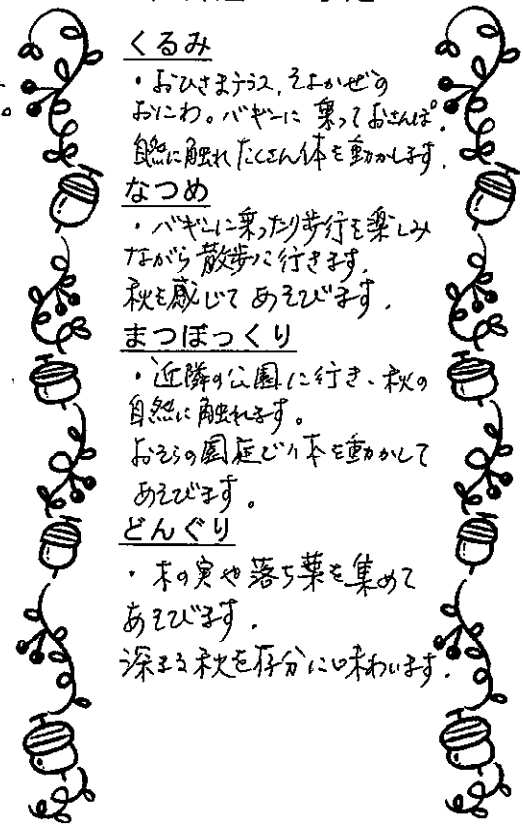 くるみ
・おひさまテラス、そよかぜの
おにわ。バギーに乗っておさんぽ。
自然に触れたくさん体を動かします。
なつめ
・バギーに乗ったり歩行を楽しみ
ながら散歩に行きます。
秋を感じてあそびます。
まつぼっくり
・近隣の公園に行き、秋の
自然に触れます。
おそらの園庭で体を動かして
あそびます。
どんぐり
・木の実や落ち葉を集めて
あそびます。
深まる秋を存分に味わいます。